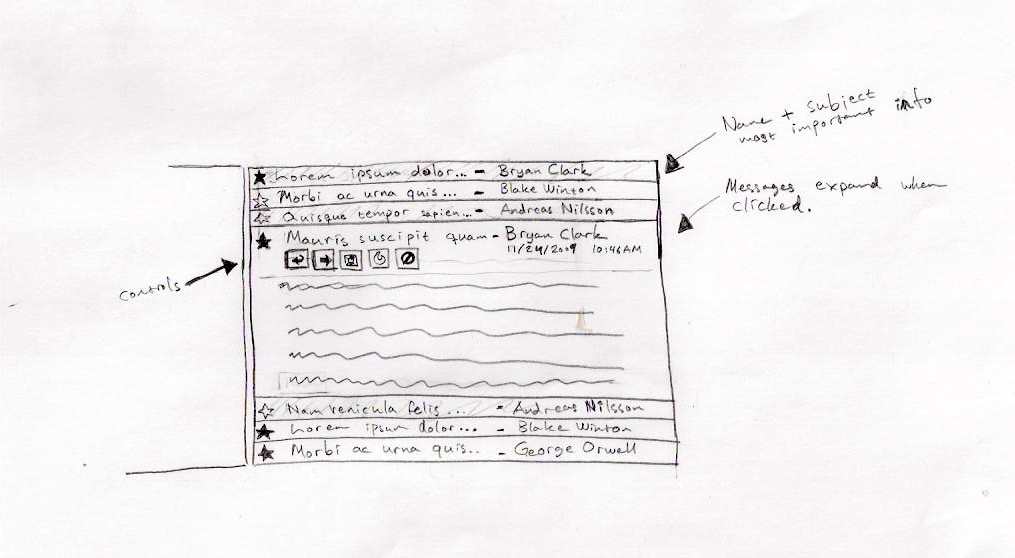 Name + subject
most important info
Messages expand when
clicked.
Lorem ipsum dolor... - Bryan Clark
Morbi ac urna quis... - Blake Winton
Quisque tempor sapien... - Andreas Nilsson
Mauris suscipit quam - Bryan Clark
11/24/2009 10:46AM
controls
Nam venicula felis ... - Andreas Nilsson
Lorem ipsum dolor... - Blake Winton
Morbi ac urna quis.. - George Orwell